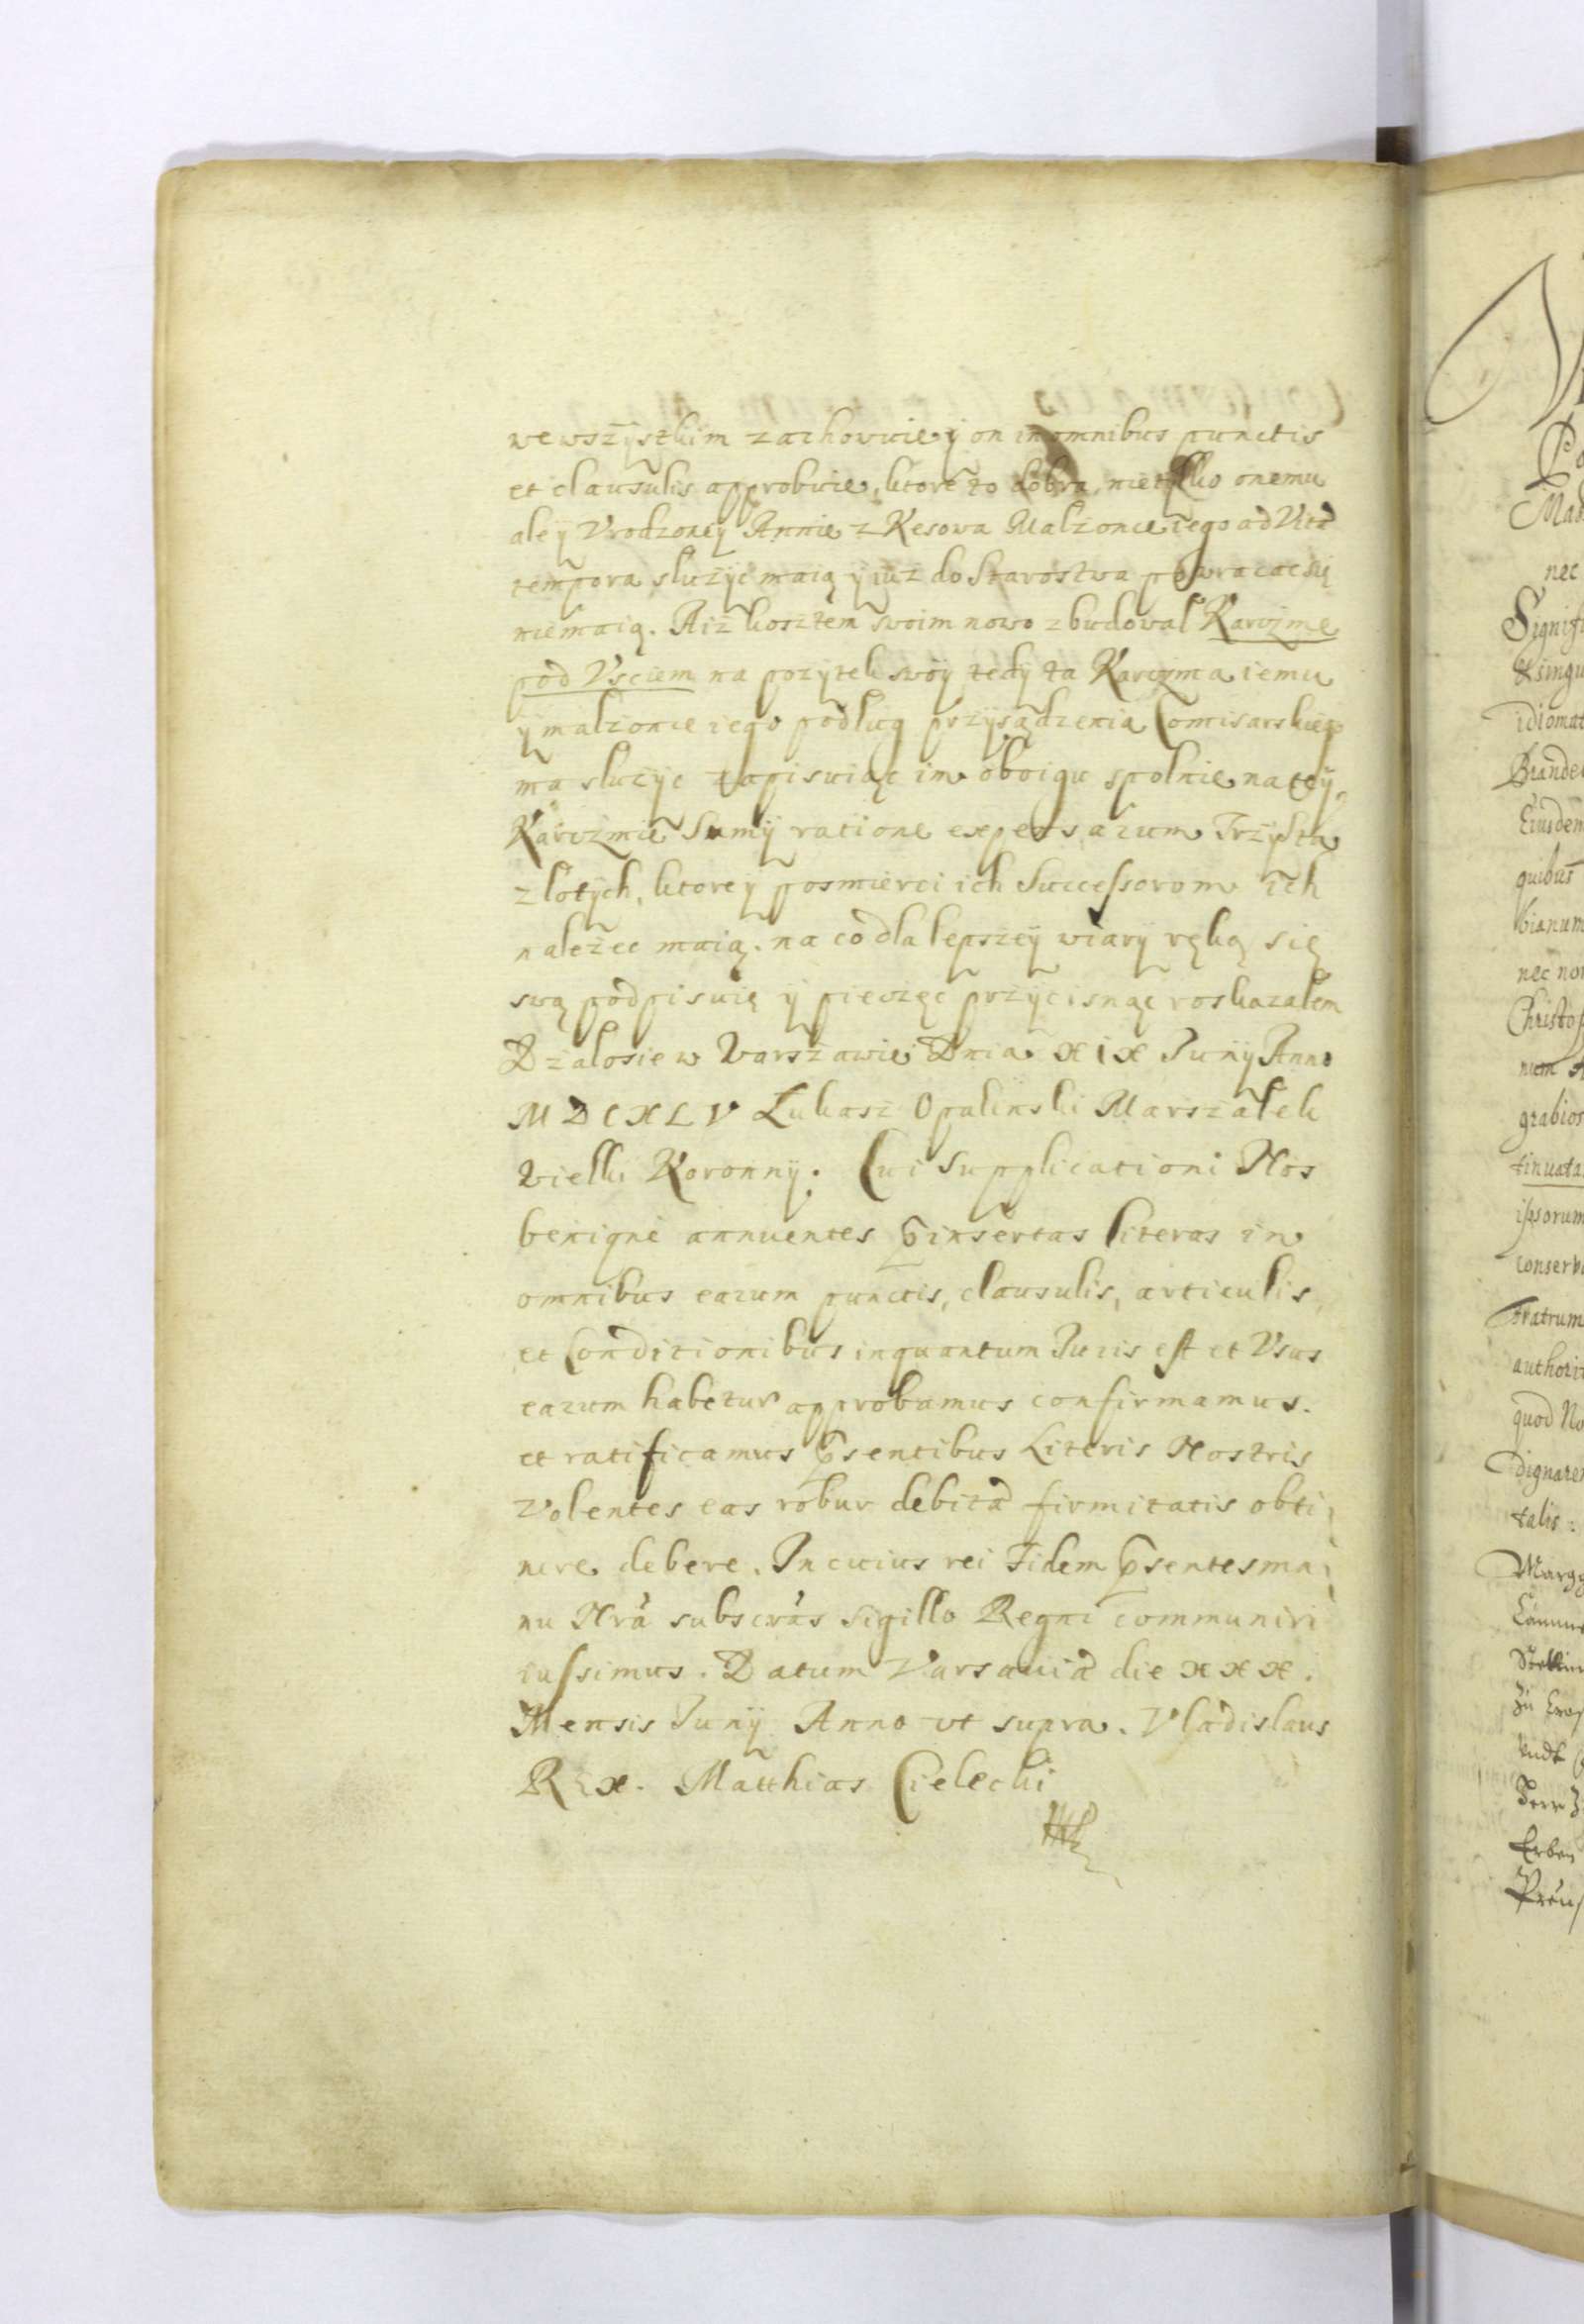 wewszystkim zachowuie y on in omnibus punctis
et clausulis approbuie, ktore to dobra, nietylko onemu
ale y Vrodzoney Annie z Kesowa Malzonce iego ad Vitæ
tempora sluzyc maią y iuz do Starostwa powracac się
niemaią. A iz kosztem swoim nowo zbudował Karczmę
pod Vsciem na pozytek swoy tedy ta Karczma iemu
y malzonce iego podlug przysądzenia Comisarskiego
ma sluzyc zapisuiąc im oboigu spolnie na tey
Karczmie Sumy ratione expensarum Trzysta
zlotych, ktorey posmierci ich Successorom ich
nalezec maią. na co dla lepszey wiary ręką się
swą podpisuię y pieczęc przycisnąć roskazalem
Dzialosie w Warszawie Dnia XIX Junij Anno
MDCXLV Lukasz Opalinski Marszalek
Wielki Koronny. Cui Supplicationi Nos
benigne annuentes p̃insertas literas in
omnibus earum punctis, clausulis, articulis,
et Conditionibus inquantum Juris est et Vsus
earum habetur approbamus confirmamus.
et ratificamus p̃sentibus Literis Nostris
Volentes eas robur debitæ firmitatis obti
nere debere. In cuius rei Fidem p̃sentes ma
nu Nrã subscrãs Sigillo Regni communiri
iussimus. Datum Varsaviæ die XXX.
Mensis Junij Anno vt supra. Vladislaus
Rex. Matthias Cielecki
Ma
nec
Signifi
et singu
idiomat
Brande
Eiusdem
quibus
bianum
nec non
Christop
num
grabios
tinuata
ipsorum
conserv
fratrum
authorit
quod No
dignare
talis:
Margg